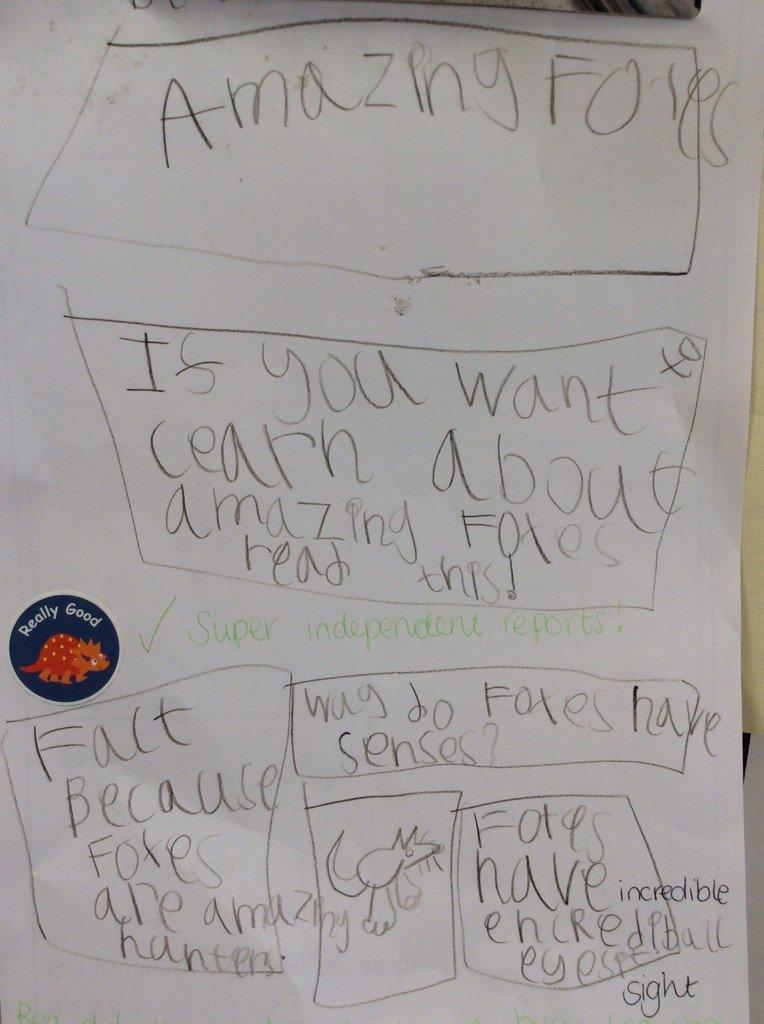 Amazing Foxes
If you want to
learn about
amazing Foxes
read this!
Really Good
✓ Super independent reports!
Fact
Because
Foxes
are amazing
hanters.
Way do Foxes have
senses?
Foxes
have
incredible
encrediball
eyesit
sight